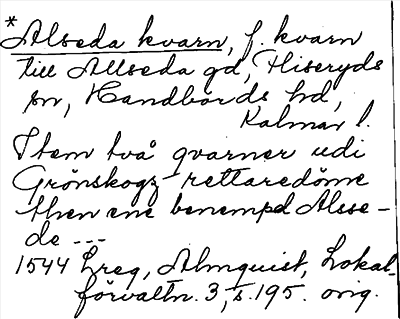 *Alseda kvarn, f. kvarn
till Allseda gd, Hiseryds
sn, Handbörds hd,
Kalmar l.
Item två qvarner udi
Grönskogz rettaredöme
then ene benempd Alsse-
de ---
1544 Lreg, Almquist, Lokal-
förvaltn. 3, s. 195. orig.